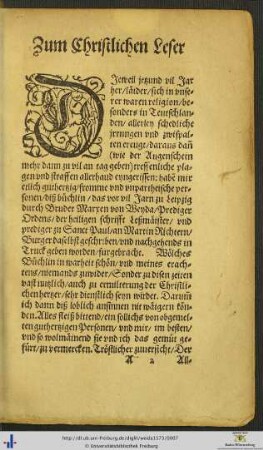 Zum Christlichen Leser
DJeweil jetzund vil Jar
her/laider/sich in unse-
rer waren religion/be-
sonders in Teutschlan-
den/allerley schedliche
jrrungen und zwispal-
ten eraige/daraus dañ
(wie der Augenschein
mehr dann zu vil an tag geben) treffenliche pla-
gen und straffen allerhand eyngerissen: habē mir
etlich guthertzig/fromme und unparthetische per-
sonen/diß büchlin/das vor vil Jarn zu Leipzig
durch Bruder Marxen von Weyda/Prediger
Ordens/der heiligen schrifft Leßmaister/und
prediger zu Sanct Paul/an Martin Richtern/
Burger daselbst geschriben/und nachgehends in
Truck geben worden/fürgebracht. Wölches
Büchlin in warheit schön/und meines erach-
tens/niemands zuwider/Sonder zu disen zeiten
vast nutzlich/auch zu ermilterung der Christli-
chen hertzer/sehr dienstlich seyn würdet. Darum̄
ich dann diß loblich ansinnen nit waigern kön-
den. Alles fleiß bittend/ein sollichs von obgemel-
ten gutherzigen Personen/und mir/im besten/
und so wolmainend sie und ich das gemüt ge-
fürt/zu vermercken. Tröstlicher zuuersicht/Der
A 2 All-
http://dl.ub.uni-freiburg.de/diglit/weida1573/0007
© Universitätsbibliothek Freiburg